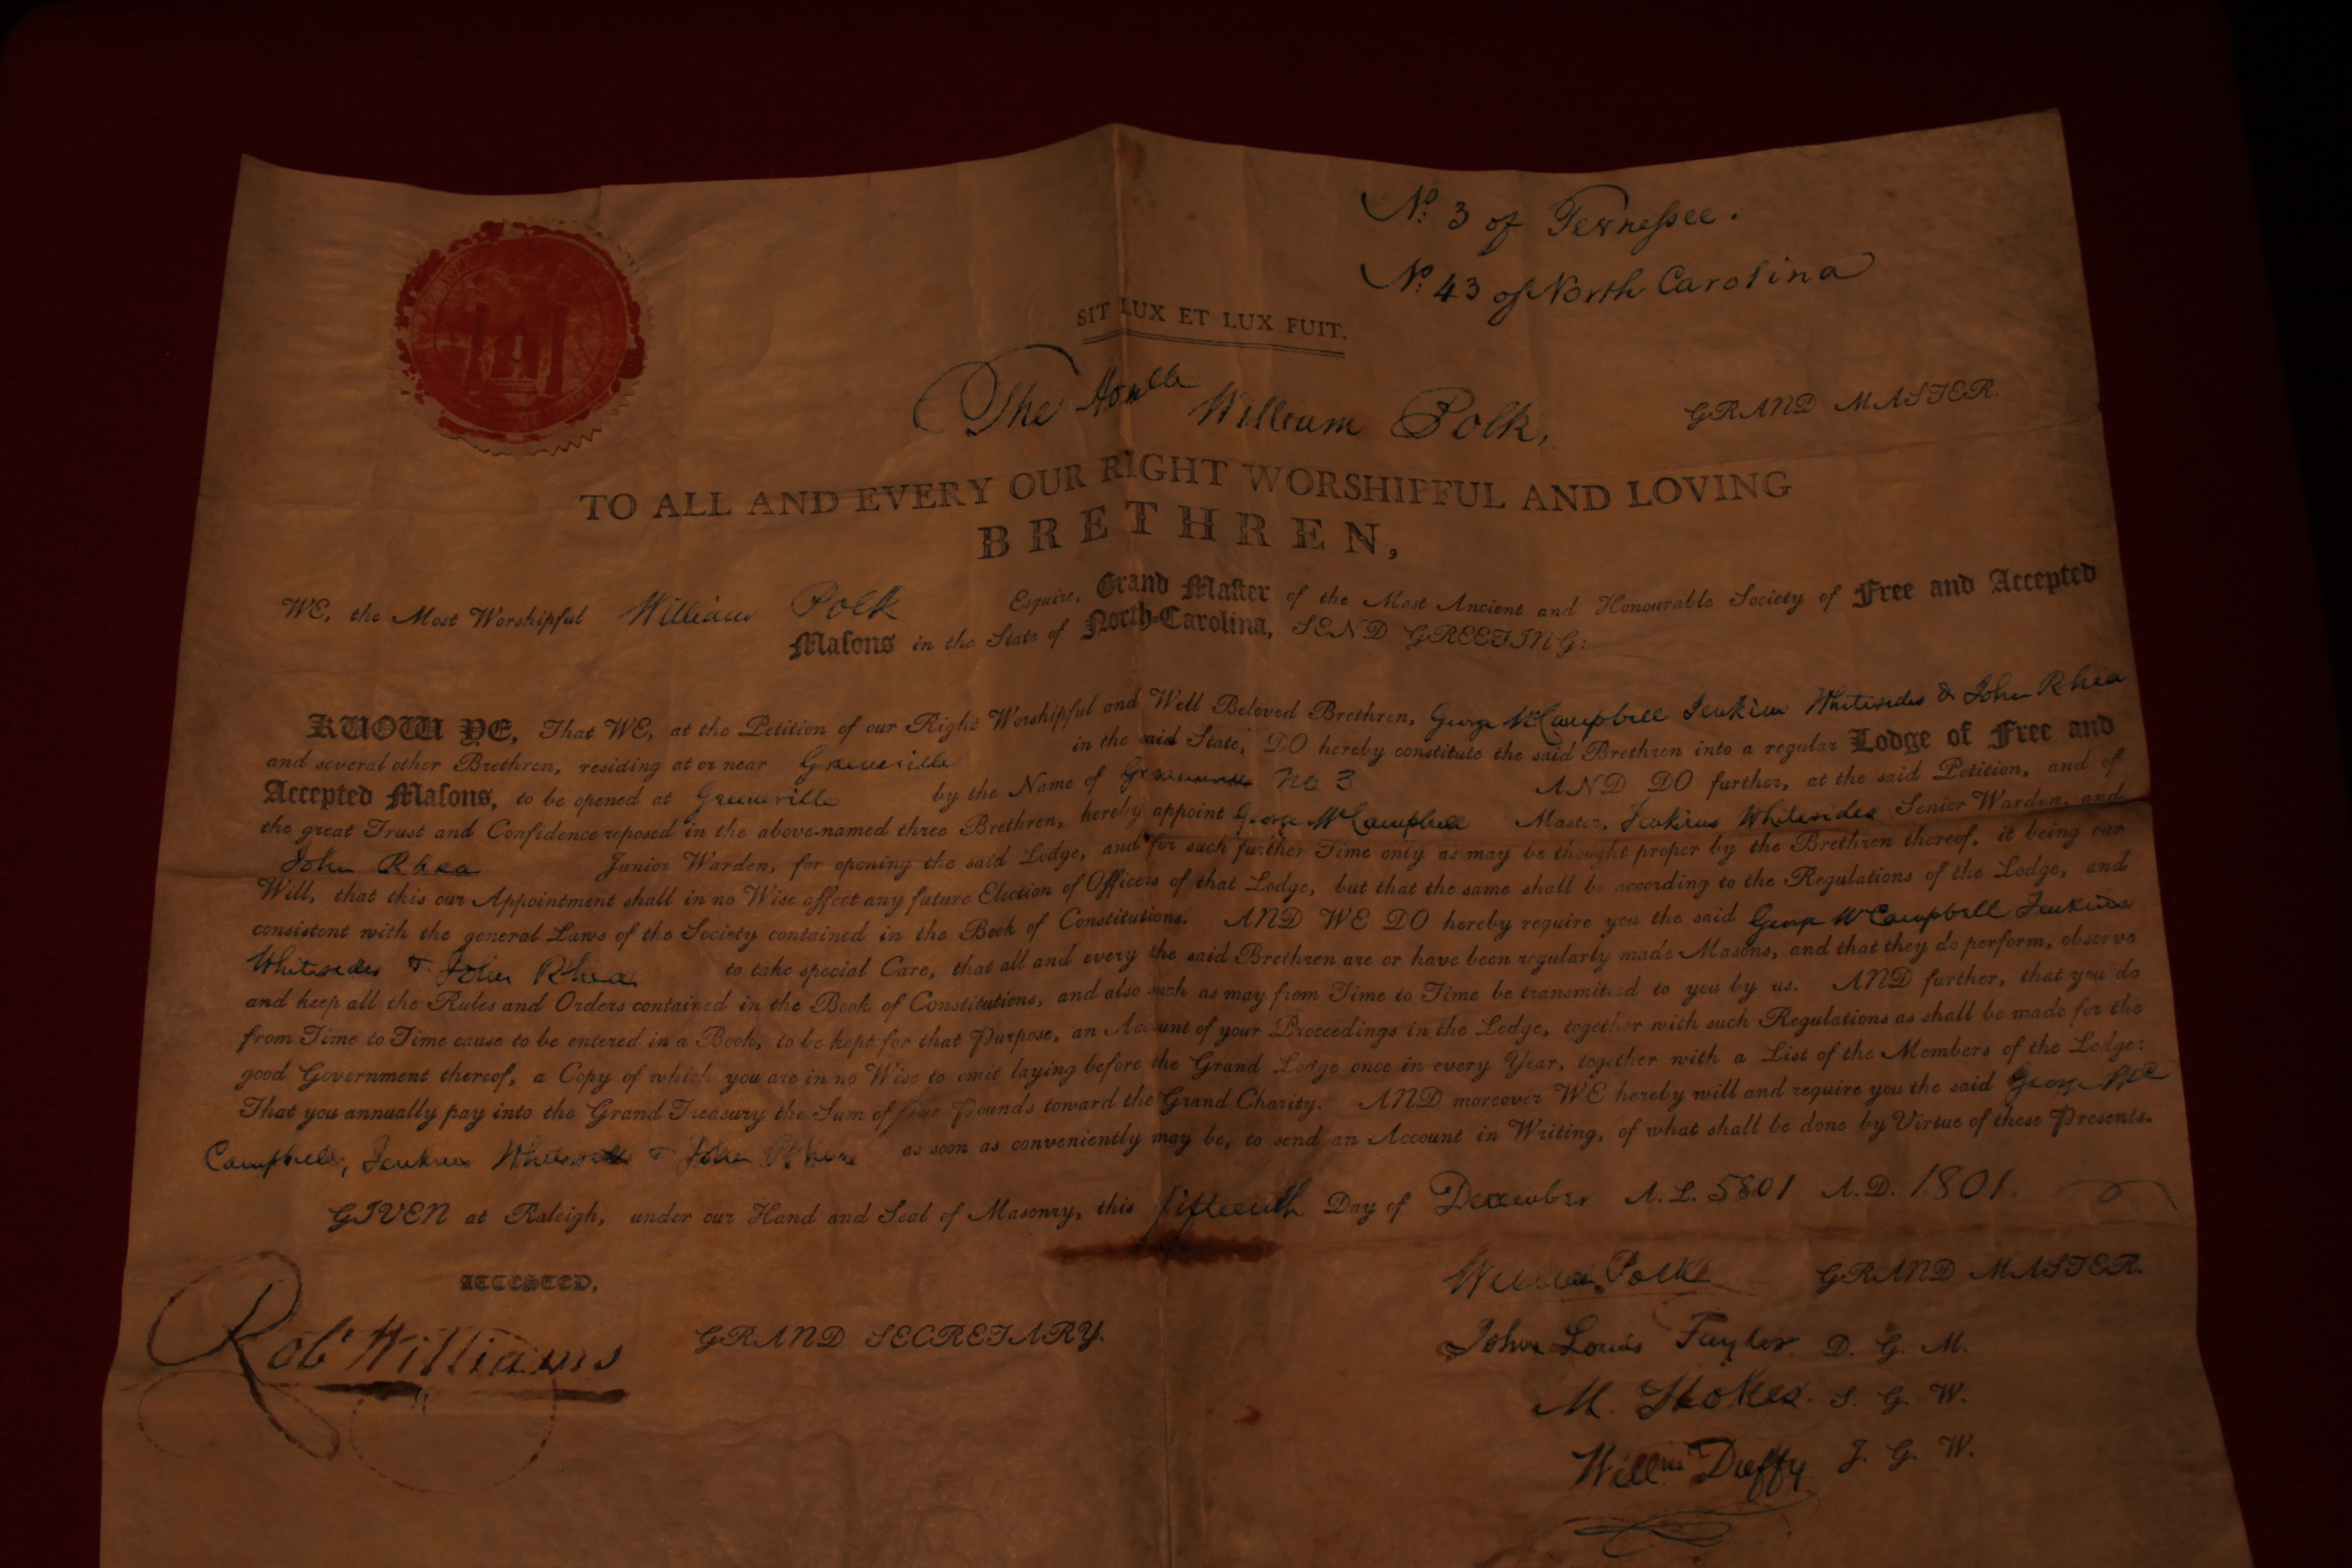 No. 3 of Tennessee.
No. 43 of North Carolina
SIT LUX ET LUX FUIT.
The Honble William Polk, GRAND MASTER.
TO ALL AND EVERY OUR RIGHT WORSHIPFUL AND LOVING
BRETHREN,
WE, the Most Worshipful William Polk Esquire, Grand Master of the Most Ancient and Honourable Society of Free and Accepted
Masons in the State of North-Carolina, SEND GREETING:
KNOW YE, That WE, at the Petition of our Right Worshipful and Well Beloved Brethren, George W Campbell Jenkins Whitesides & John Rhea
and several other Brethren, residing at or near Greeneville in the said State, DO hereby constitute the said Brethren into a regular Lodge of Free and
Accepted Masons, to be opened at Greeneville by the Name of No 3 AND DO further, at the said Petition, and of
the great Trust and Confidence reposed in the above-named three Brethren, hereby appoint George W Campbell Master, Jenkins Whitesides Senior Warden, and
John Rhea Junior Warden, for opening the said Lodge, and for such further Time only as may be thought proper by the Brethren thereof, it being our
Will, that this our Appointment shall in no Wise affect any future Election of Officers of that Lodge, but that the same shall be according to the Regulations of the Lodge, and
consistent with the general Laws of the Society contained in the Book of Constitutions. AND WE DO hereby require you the said George W Campbell Jenkins
Whitesides & John Rhea to take special Care, that all and every the said Brethren are or have been regularly made Masons, and that they do perform, observe
and keep all the Rules and Orders contained in the Book of Constitutions, and also such as may from Time to Time be transmitted to you by us. AND further, that you do
from Time to Time cause to be entered in a Book, to be kept for that Purpose, an Account of your Proceedings in the Lodge, together with such Regulations as shall be made for the
good Government thereof, a Copy of which you are in no Wise to omit laying before the Grand Lodge once in every Year, together with a List of the Members of the Lodge:
That you annually pay into the Grand Treasury the Sum of five Pounds toward the Grand Charity. AND moreover WE hereby will and require you the said George
Campbell, Jenkins Whitesides & John Rhea as soon as conveniently may be, to send an Account in Writing, of what shall be done by Virtue of these Presents.
GIVEN at Raleigh, under our Hand and Seal of Masonry, this fifteenth Day of December A.L. 5801 A.D. 1801.
ATTESTED,
Robt Williams GRAND SECRETARY.
William Polk GRAND MASTER.
John Louis Taylor D. G. M.
M. Stokes. S. G. W.
Willm Duffy J. G. W.